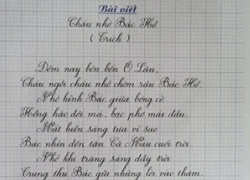 Bài viết
Cháu nhớ Bác Hồ
( Trích )
Đêm nay bên bến Ô Lâu,
Cháu ngồi cháu nhớ chòm râu Bác Hồ.
Nhớ hình Bác giữa bóng cờ
Hồng hào đôi má, bạc phơ mái đầu.
Mắt hiền sáng tựa vì sao
Bác nhìn đến tận Cà Mau cuối trời.
Nhớ khi trăng sáng đầy trời
Trung thu Bác gửi những lời vào thăm.